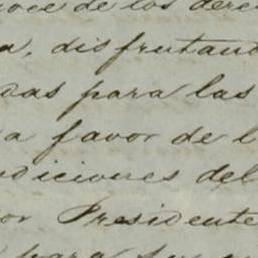 oce de los derec
a, disfrutand
das para las
a favor de l
ndiciones del
or Presidente
para su